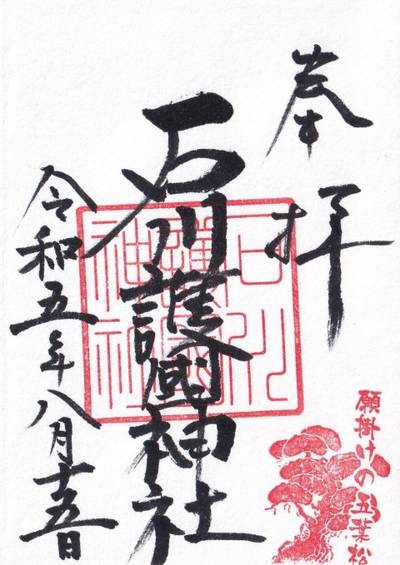 奉拝
石川護國神社
令和五年八月十五日
願掛けの五葉松
石川護國神社